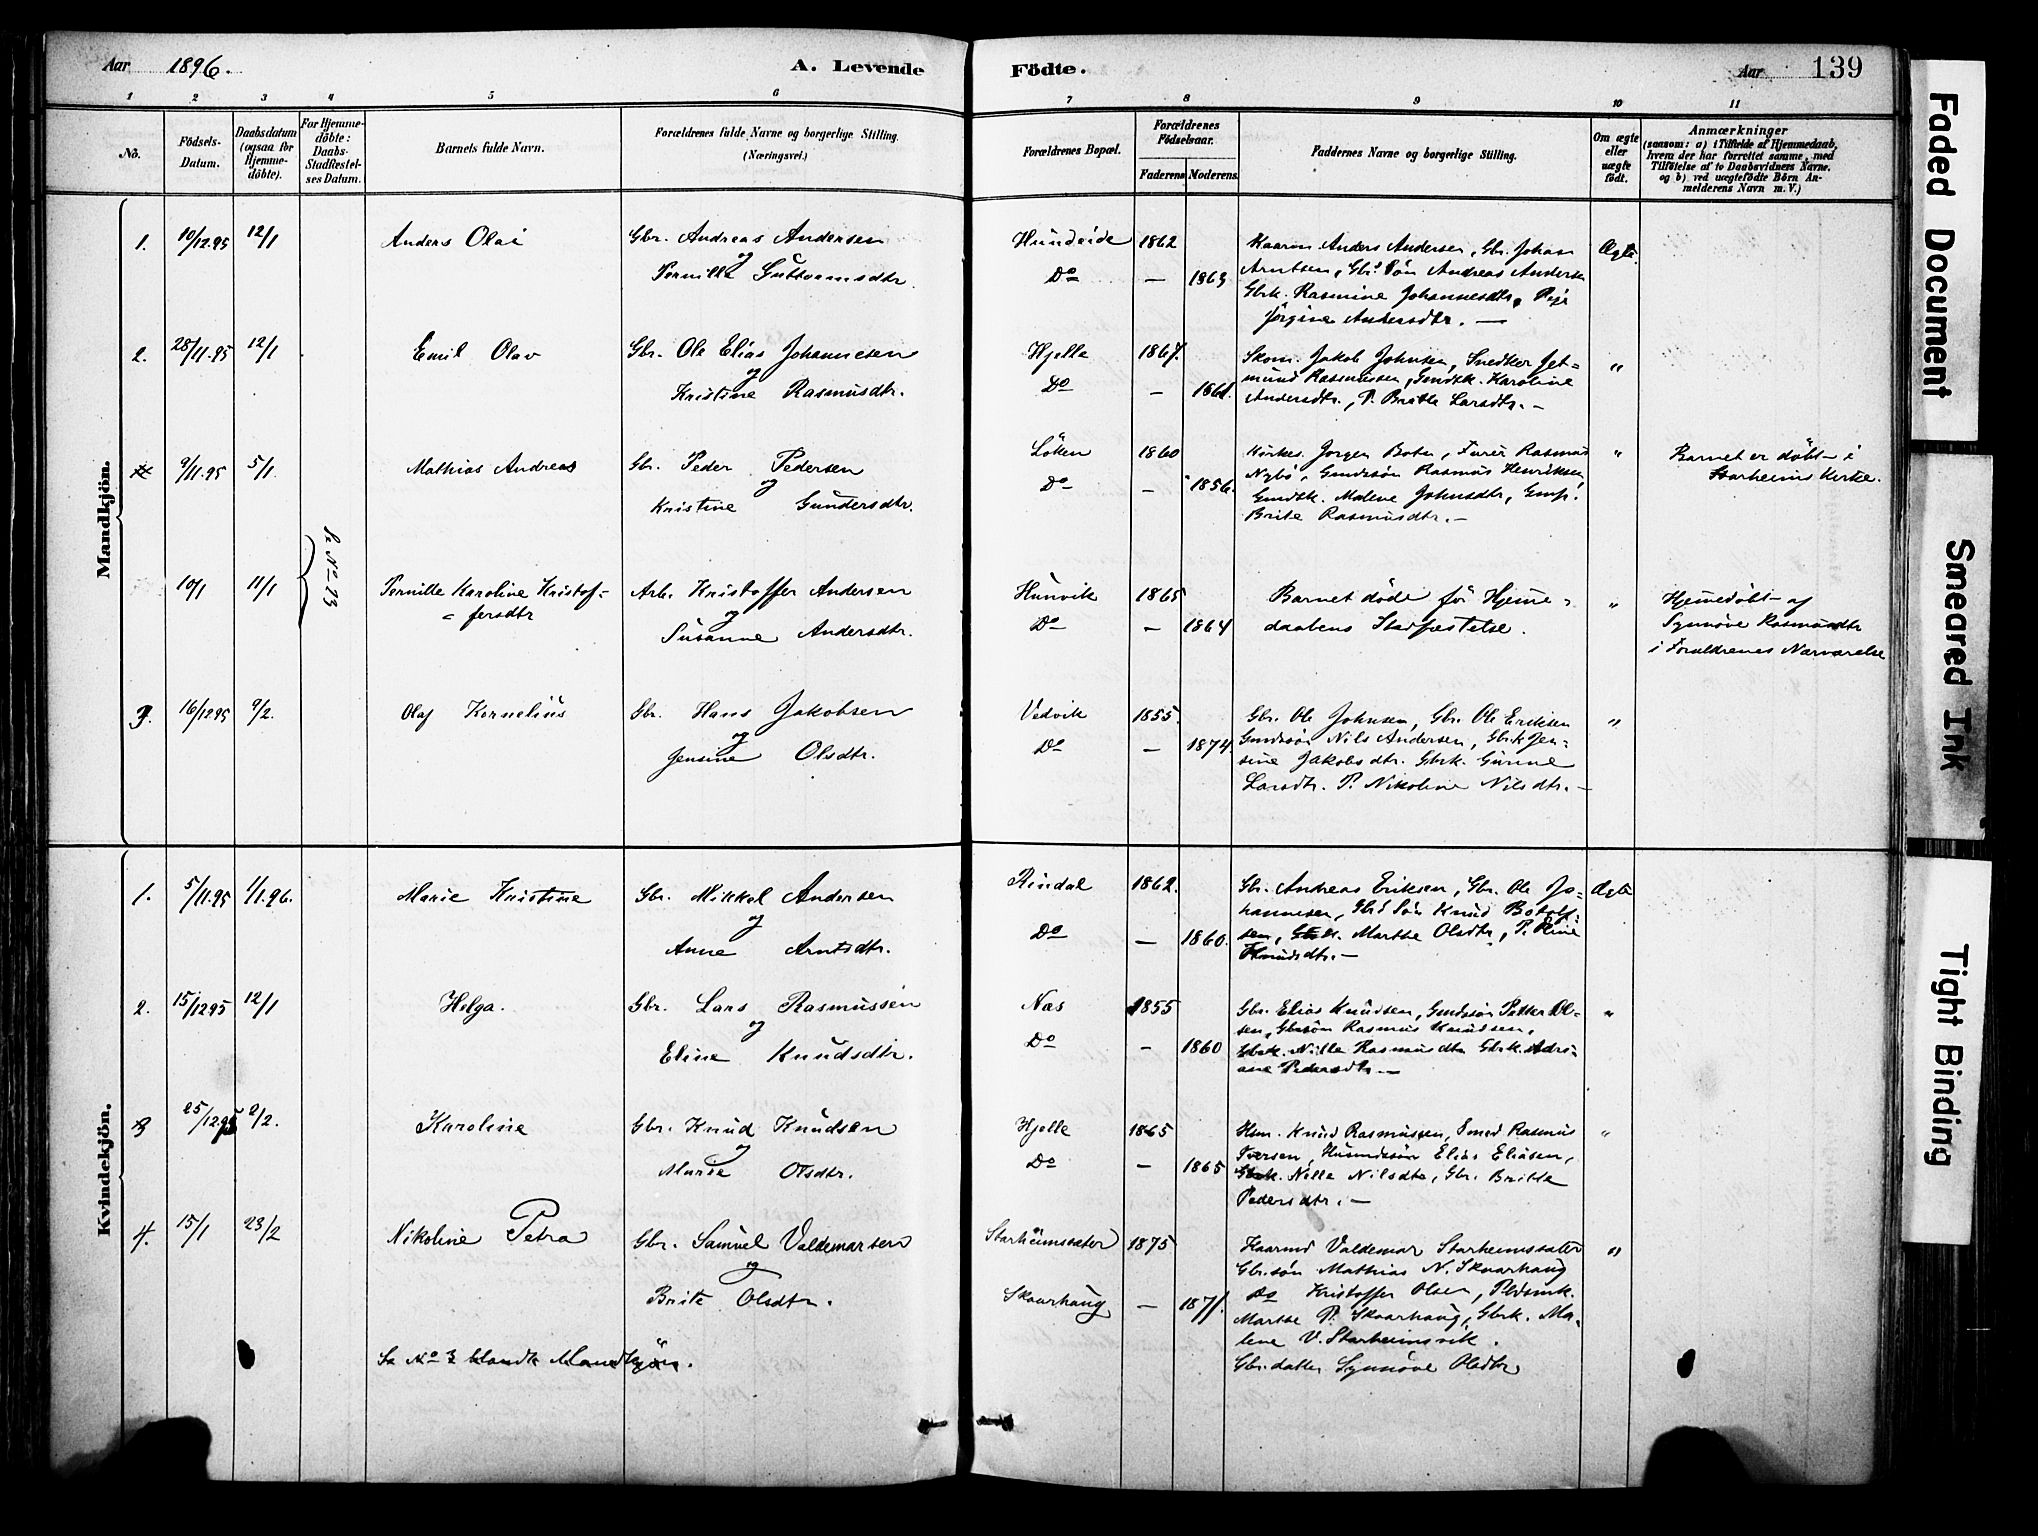 Aar 1896.
A. Levende Födte.
Aar 139
1 2 3 4 5 6 7 8 9 10 11
No.
Födsels-Datum.
Daabsdatum (ogsaa for Hjemme-döbte).
For Hjemme-döbte: Daabs-Stadfæstel-ses Datum.
Barnets fulde Navn.
Forældrenes fulde Navne og borgerlige Stilling. (Næringsvei.)
Forældrenes Bopæl.
Forældrenes Födselsaar.
Faderens Moderens
Faddernes Navne og borgerlige Stilling.
Om ægte eller uægte födt.
Anmærkninger
(saasom: a) i Tilfælde af Hjemmedaab, hvem der har forrettet samme, med Tilföielse af to Daabsvidners Navne, og b) ved uægtefödte Börn An-melderens Navn m. V.)
Mandkjön.
1. 10/12.95 12/1 Anders Olai Gbr. Andreas Andersen
og
Pernille Guttormsdtr.
Hundeide 1862
Do — 1863
Kaarm. Anders Andersen, Gbr. Johan
Arntsen, Gbrs Søn Andreas Andersen
Gbrk. Rasmine Johannesdtr, Pige
Jørgine Andersdtr. —
Ægte.
2. 28/11.95 12/1 Emil Olav Gbr. Ole Elias Johannesen
og
Kristine Rasmusdtr.
Hjelle 1867.
Do — 1861.
Skom. Jakob Johnsen, Snedker Jet=
mund Rasmussen, Gmdsk. Karoline
Andersdtr., P. Brithe Larsdtr. —
"
9/11.95 5/1 Mathias Andreas Gbr. Peder Pedersen
og
Kristine Gundersdtr.
Löken 1860
Do — 1856.
Kirkes. Jørgen Boten, Furer Rasmus
Nybö, Gmdssön Rasmus Henriksen
Gmdsk. Malene Johnsdtr,
Brite Rasmusdtr. —
"
Barnet er döbt i
Starheims Kirke.
Se No 13
10/1 11/1 Pernille Karoline Kristof=
=fersdtr
Arb. Kristoffer Andersen
og
Susanne Andersdtr.
Hunvik 1865
Do — 1864
Barnet døde før Hjeme=
daabens Stadfæstelse.
"
Hjemedöbt af
Synnöve Rasmusdtr
i Forældrenes Nærværelse
3. 16/12.95 9/2. Olaf Kornelius Gbr. Hans Jakobsen
og
Jensine Olsdtr.
Vedvik 1855.
Do — 1874.
Gbr. Ole Johnsen, Gbr. Ole Eriksen
Gmdssön Nils Andersen, Gbrk Jen=
sine Jakobsdtr. Gbrk. Gurine
Larsdtr. P. Nikoline Nilsdtr. —
"
Kvindekjön.
1. 5/11.95 1/1.96. Marie Kristine Gbr. Mikkel Andersen
og
Anne Arntsdtr.
Rindal 1862.
Do — 1860.
Gbr. Andreas Eriksen, Gbr. Ole Jo=
hannesen, Gbrs Søn Knud Botolf=
sen, Gbrk. Marthe Olsdtr, P. Rine
Knudsdtr. —
Ægte
2. 15/12.95 12/1 Helga. Gbr. Lars Rasmussen
og
Eline Knudsdtr.
Næs 1855
Do — 1860
Gbr. Elias Knudsen, Gmdssön Petter Ol=
sen, Gbrsön Rasmus Knudsen,
Gbrk. Nille Rasmusdtr Gbrk. Adri=
ane Pedersdtr. —
"
3 25/12.95 9/2. Karoline Gbr. Knud Knudsen
og
Marie Olsdtr.
Hjelle 1865
Do — 1865
Hsm. Knud Rasmussen, Smed Rasmus
Iversen, Husmdssön Elias Eliasen,
Gbrk. Nille Nilsdtr, Gbr. Brithe
Pedersdtr. —
"
4. 15/1 23/2 Nikoline Petra Gbr. Samuel Valdemarsen
og
Brite Olsdtr.
Starheimsæter 1875
Skaarhaug — 1871.
Kaarmd Valdemar Starheimsæter
Gbr.sön Mathias N. Skaarhaug
Do Kristoffer Olsen,
Marthe P. Skaarhaug, Gbrk. Ma=
lene V. Starheimsvik.
Gbr.datter Synnöve Olsdtr
"
Se No 3 blandt Mandkjön.
Faded Document
Smeared Ink
Tight Binding